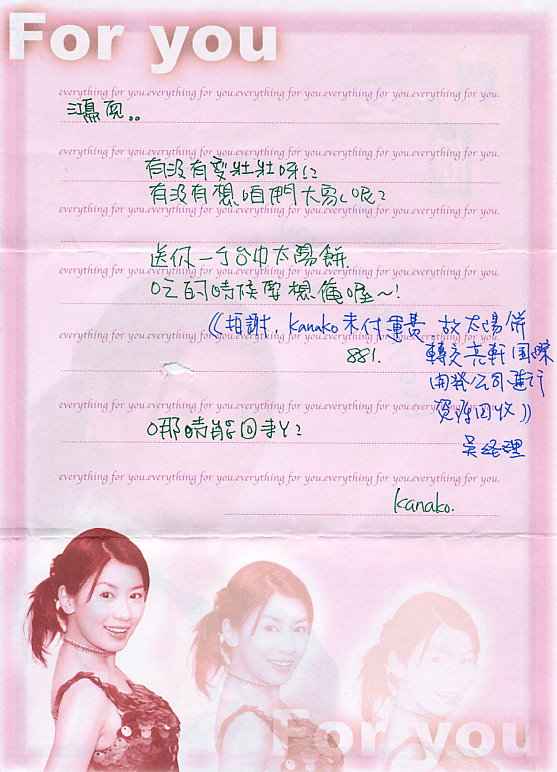 For you
everything for you.everything for you.everything for you.everything for you.
鴻
everything for you.everything for you.everything for you.everything for you.
有沒有變壯壯呀!?
有沒有想咱們大家ㄟ呢?
everything for you.everything for you.everything for you.everything for you.
送你一ㄎ台中太陽餅
everything for you.everything for you.everything for you.everything for you.
吃的時候要想俺喔~!
《抱謝, Kanako未付運費, 故太陽餅
everything for you.everything for you.everything for you.everything for you.
881.
轉交亮軒国際
開發公司進行
資源回收》
everything for you.everything for you.everything for you.everything for you.
ㄋ那時能回ㄎㄚ?
吳経理
everything for you.everything for you.everything for you.everything for you.
kanako.
For you